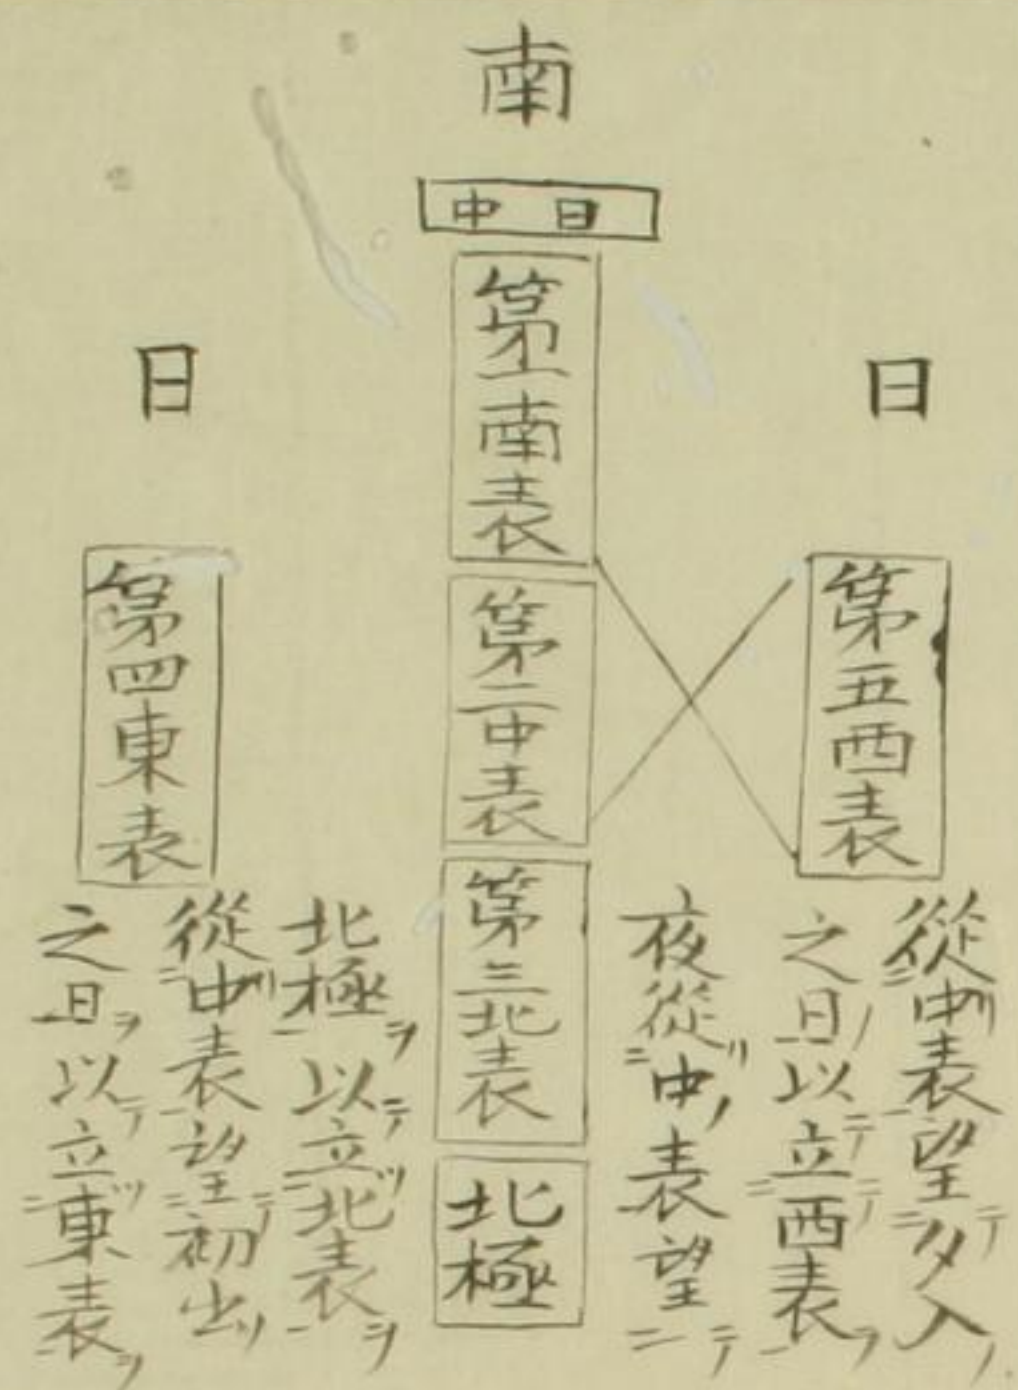 南
日中
日
日
第一南表
第二中表
第三北表
北極
第五西表
第四東表
從中表望夕入
之日以立西表
夜從中表望
北極以立北表
從中表望初出
之日以立東表